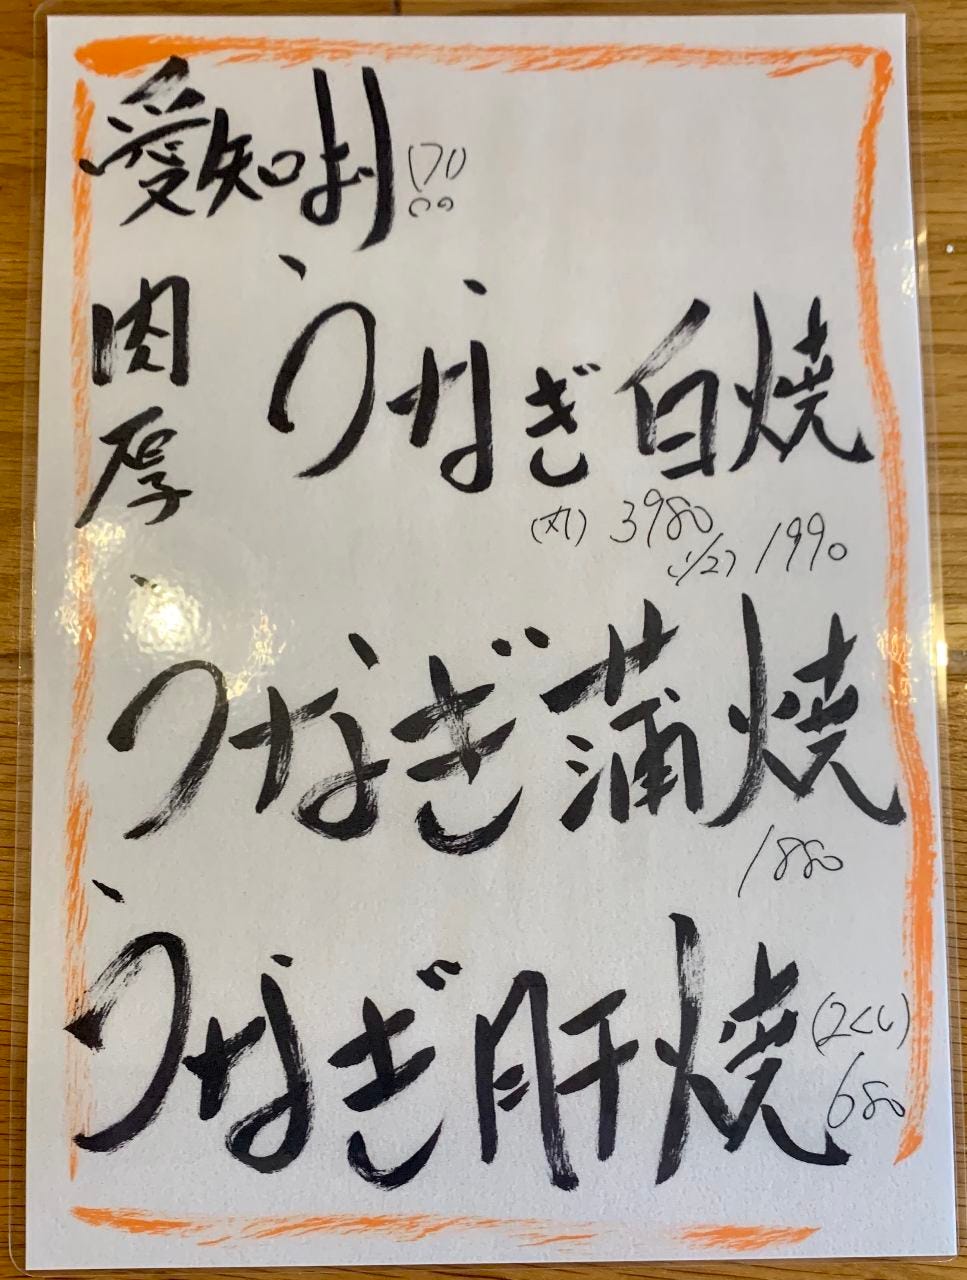 愛知より
肉厚
うなぎ白焼
(丸) 3980
(1/2) 1990
うなぎ蒲焼
1880
うなぎ肝焼
(2くし)
680